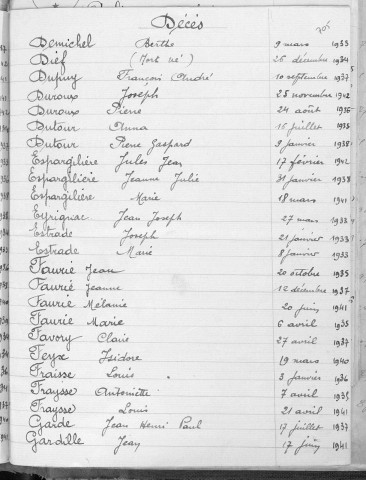 Décés
Demichel Berthe 9 mars 1933
Dief (Mort né) 26 décembre 1934
Dupuy François André 10 septembre 1937
Duroux Joseph 28 novembre 1942
Duroux Pierre 24 août 1936
Dutour Anna 15 juillet 1938
Dutour Pierre Gaspard 9 janvier 1938
Espargilière Jules Jean 17 février 1942
Espargilière Jeanne Julie 31 janvier 1938
Espargilière Marie 18 mars 1941
Eyrignac Jean Joseph 27 mars 1933
Estrade Joseph 21 janvier 1933
Estrade Marie 8 janvier 1933
Faurié Jean 20 octobre 1935
Faurié Jeanne 12 décembre 1937
Faurié Mélanie 20 juin 1941
Faurie Marie 6 avril 1935
Favory Claire 27 avril 1937
Feyx Isidore 19 mars 1940
Fraisse Louis 3 janvier 1936
Fraysse Antoinette 7 avril 1935
Fraysse Louis 21 avril 1941
Garde Jean Henri Paul 17 juillet 1937
Gardille Jean 17 juin 1941